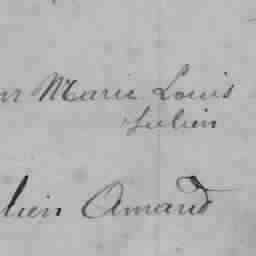 Marie Louis
Julien
lien Amand